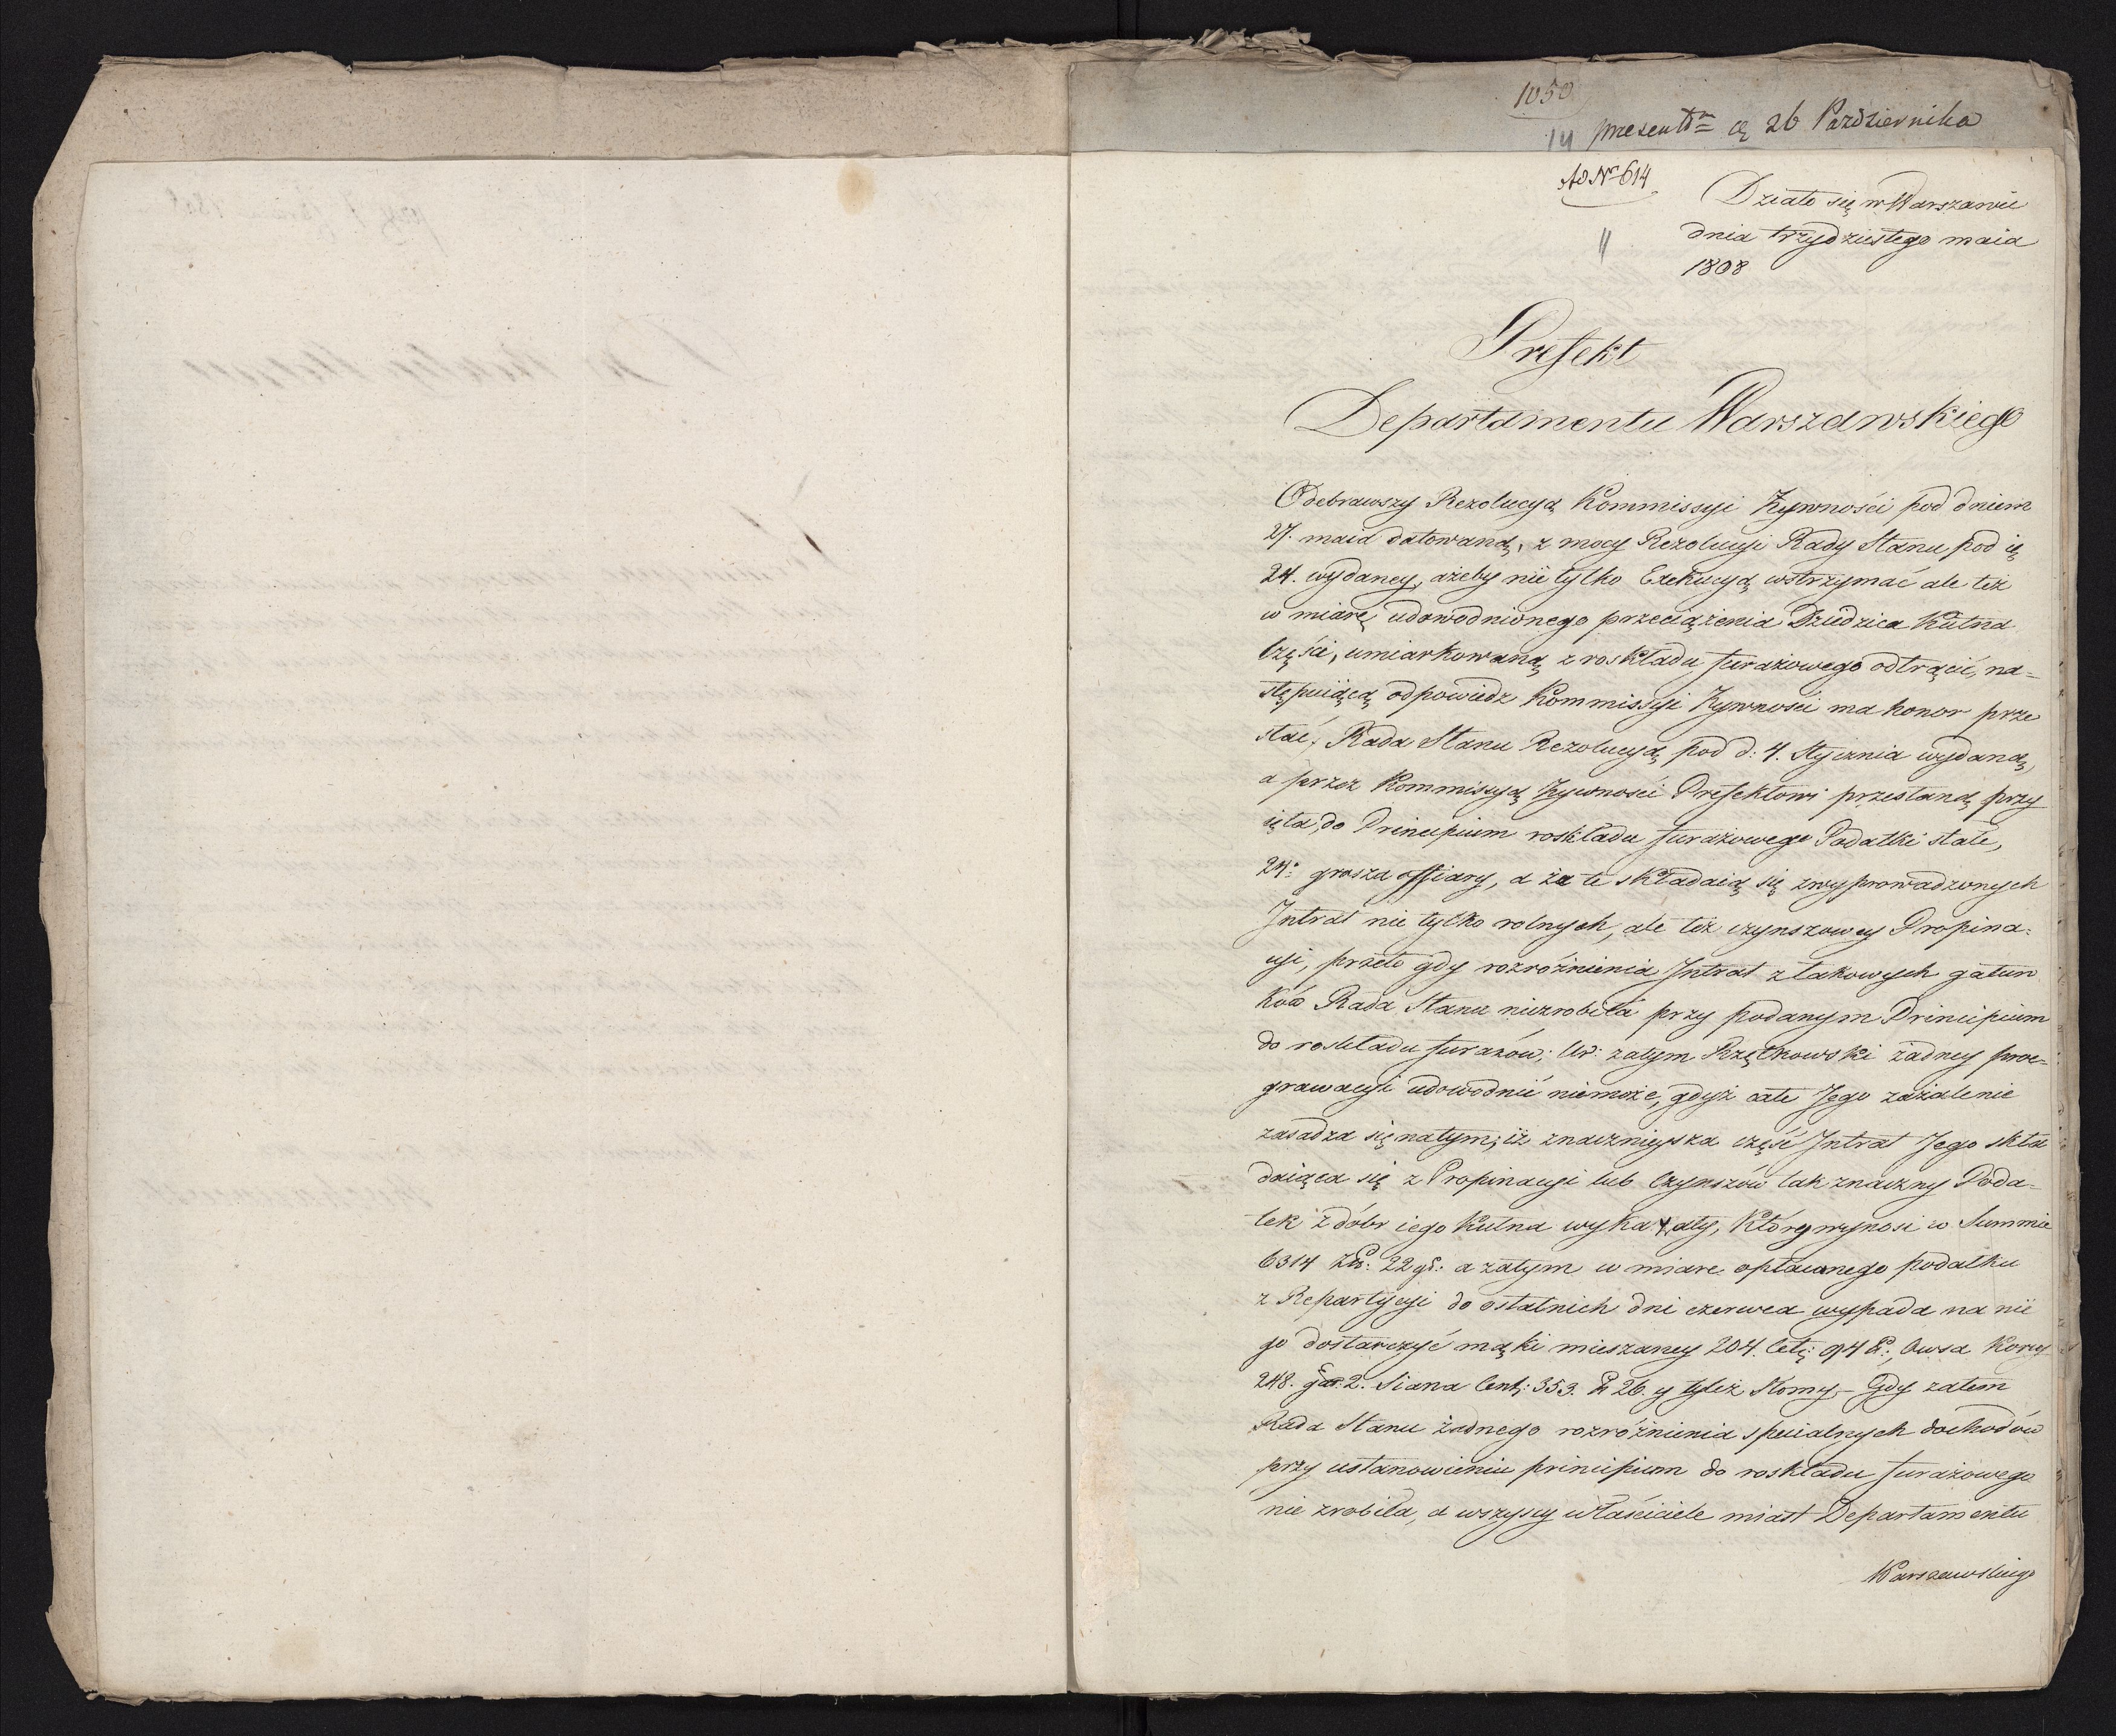 1050
14 presentm cę 26 Pazdziernika
Ad Nr 614
Działo się w Warszawie
dnia trzydziestego maia
1808
11
Prefekt
Departamentu Warszawskiego
Odebrawszy Rezolucyą Kommissyi Żywności pod dniem
27. maia datowaną, z mocy Rezolucyi Rady Stanu pod
24. wydaney, ażeby nie tylko Exekucyą wstrzymać ale też
w miarę udowodnionego przeciążenia Dziedzica Kutna
części, umiarkowaną z roskładu furażowego odtrącić, na-
stępuiącą odpowiedz Kommissyi Żywności ma honor prze
słać, Rada Stanu Rezolucyą pod d: 4. Stycznia wydaną,
a przez Kommissyą Żywności Prefektowi przesłaną przy
ięła, do Principium roskładu furażowego Podatki stałe,
24: grosza offiary, a że te składaią się zwyprowadzonych
Jntrat nie tylko rolnych, ale też czynszowey Propina-
cyi, przeto gdy rozróżnienia Jntrat z takowych gatun
ków Rada Stanu niezrobiła przy podanym Principium
do roskładu furażów; Ur: zatym Rzętkowski żadney prae-
grawacyi udowodnić niemoże, gdyż całe Jego zażalenie
zasadza się natym; iż znacznieysza część Jntrat Jego skła
daiąca się z Propinacyi lub Czynszów tak znaczny Poda-
tek z dóbr iego Kutna wykazały, który wynosi w Summie
6314 Zł: 22 gr: a zatym w miarę opłacanego podatku
z Repartycyi do ostatnich dni czerwca wypada na nie
go dostarczyć mąki mieszaney 204 Cet: 94 ℔:, Owsa Korcy
248. gar: 2. Siana Cent: 353. ℔ 26. y tyleż Słomy,- Gdy zatem
Rada Stanu żadnego rozróżnienia specialnych dochodów
przy ustanowieniu principium do roskładu furażowego
nie zrobiła, a wszyscy właściciele miast Departamentu
Warszawskiego